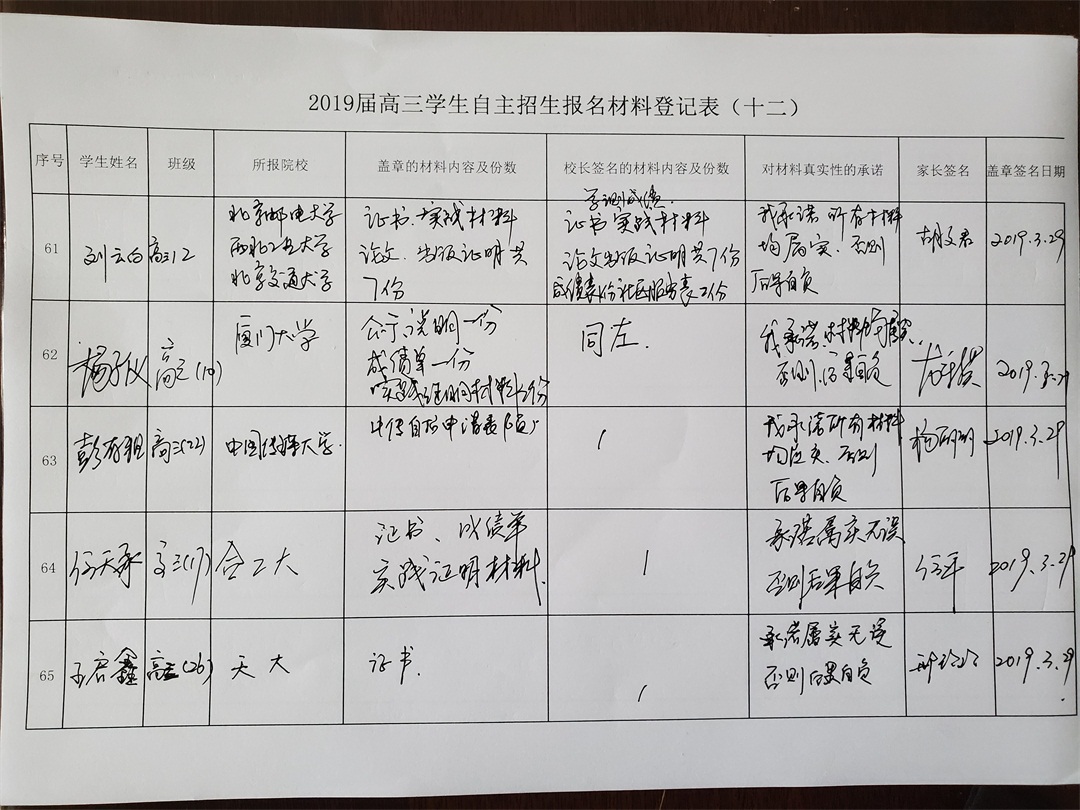 2019届高三学生自主招生报名材料登记表（十二）
序号 学生姓名 班级 所报院校 盖章的材料内容及份数 校长签名的材料内容及份数 对材料真实性的承诺 家长签名 盖章签名日期
61 刘云白 高三12
北京邮电大学
西北工业大学
北京交通大学
证书、实践材料
论文、出版证明共
7份
学测成绩、
证书实践材料
论文出版证明共7份
成绩表1份社区服务表2份
我承诺所有材料
均属实、否则
后果自负
胡文君 2019.3.29
62 杨子仪 高三(10)
厦门大学
公示说明一份
成绩单一份
实践证明材料2份
同左.
我承诺材料均属实、
否则、后果自负
2019.3.29
63 高三(22)
中国传媒大学.
我承诺所有材料
均属实、否则
后果自负
杨丽丽 2019.3.29
64 任天承 高三(17) 合工大
证书、成绩单
实践证明材料.
1
承诺属实无误
否则后果自负
任平 2019.3.29
65 王启鑫 高三(26) 天大
证书.
1
承诺属实无误
否则后果自负
2019.3.29.